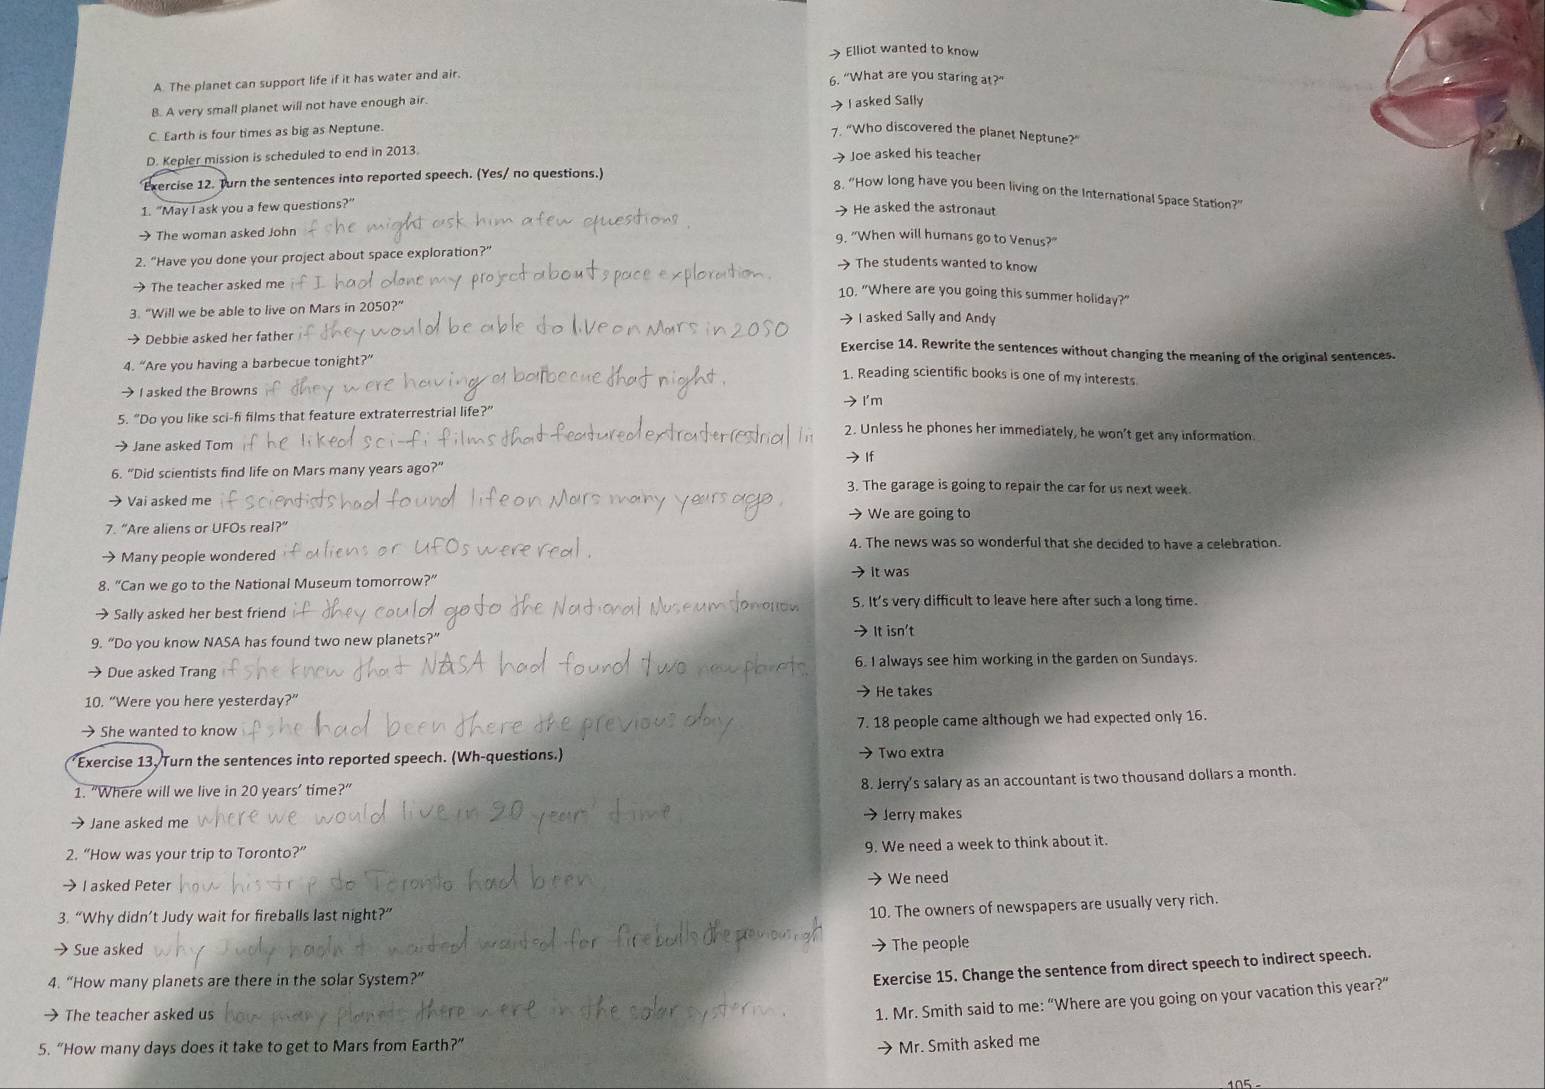 A. The planet can support life if it has water and air.
B. A very small planet will not have enough air.
C. Earth is four times as big as Neptune.
D. Kepler mission is scheduled to end in 2013.
Exercise 12. Turn the sentences into reported speech. (Yes/ no questions.)
1. "May I ask you a few questions?"
→ The woman asked John if she might ask him a few questions.
2. "Have you done your project about space exploration?"
→ The teacher asked me if I had done my project about space exploration.
3. "Will we be able to live on Mars in 2050?"
→ Debbie asked her father if they would be able to live on Mars in 2050
4. "Are you having a barbecue tonight?"
→ I asked the Browns if they were having a barbecue that night.
5. "Do you like sci-fi films that feature extraterrestrial life?"
→ Jane asked Tom if he liked sci-fi films that featured extraterrestrial li
6. "Did scientists find life on Mars many years ago?"
→ Vai asked me if scientists had found life on Mars many years ago.
7. "Are aliens or UFOs real?"
→ Many people wondered if aliens or UFOs were real.
8. "Can we go to the National Museum tomorrow?"
→ Sally asked her best friend if they could go to the National Museum tomorrow
9. "Do you know NASA has found two new planets?"
→ Due asked Trang if she knew that NASA had found two new planets.
10. "Were you here yesterday?"
→ She wanted to know if she had been there the previous day
Exercise 13. Turn the sentences into reported speech. (Wh-questions.)
1. "Where will we live in 20 years' time?"
→ Jane asked me where we would live in 20 year' time.
2. "How was your trip to Toronto?"
→ I asked Peter how his trip to Toronto had been.
3. "Why didn't Judy wait for fireballs last night?"
→ Sue asked why Judy hadn't waited wanted for fireballs the previous nigh
4. "How many planets are there in the solar System?"
→ The teacher asked us how many planets there were in the solar systerm.
5. "How many days does it take to get to Mars from Earth?"
→ Elliot wanted to know
6. "What are you staring at?"
→ I asked Sally
7. "Who discovered the planet Neptune?"
→ Joe asked his teacher
8. "How long have you been living on the International Space Station?"
→ He asked the astronaut
9. "When will humans go to Venus?"
→ The students wanted to know
10. "Where are you going this summer holiday?"
→ I asked Sally and Andy
Exercise 14. Rewrite the sentences without changing the meaning of the original sentences.
1. Reading scientific books is one of my interests.
→ I'm
2. Unless he phones her immediately, he won't get any information.
→ If
3. The garage is going to repair the car for us next week.
→ We are going to
4. The news was so wonderful that she decided to have a celebration.
→ It was
5. It's very difficult to leave here after such a long time.
→ It isn't
6. I always see him working in the garden on Sundays.
→ He takes
7. 18 people came although we had expected only 16.
→ Two extra
8. Jerry's salary as an accountant is two thousand dollars a month.
→ Jerry makes
9. We need a week to think about it.
→ We need
10. The owners of newspapers are usually very rich.
→ The people
Exercise 15. Change the sentence from direct speech to indirect speech.
1. Mr. Smith said to me: "Where are you going on your vacation this year?"
→ Mr. Smith asked me
- 105 -